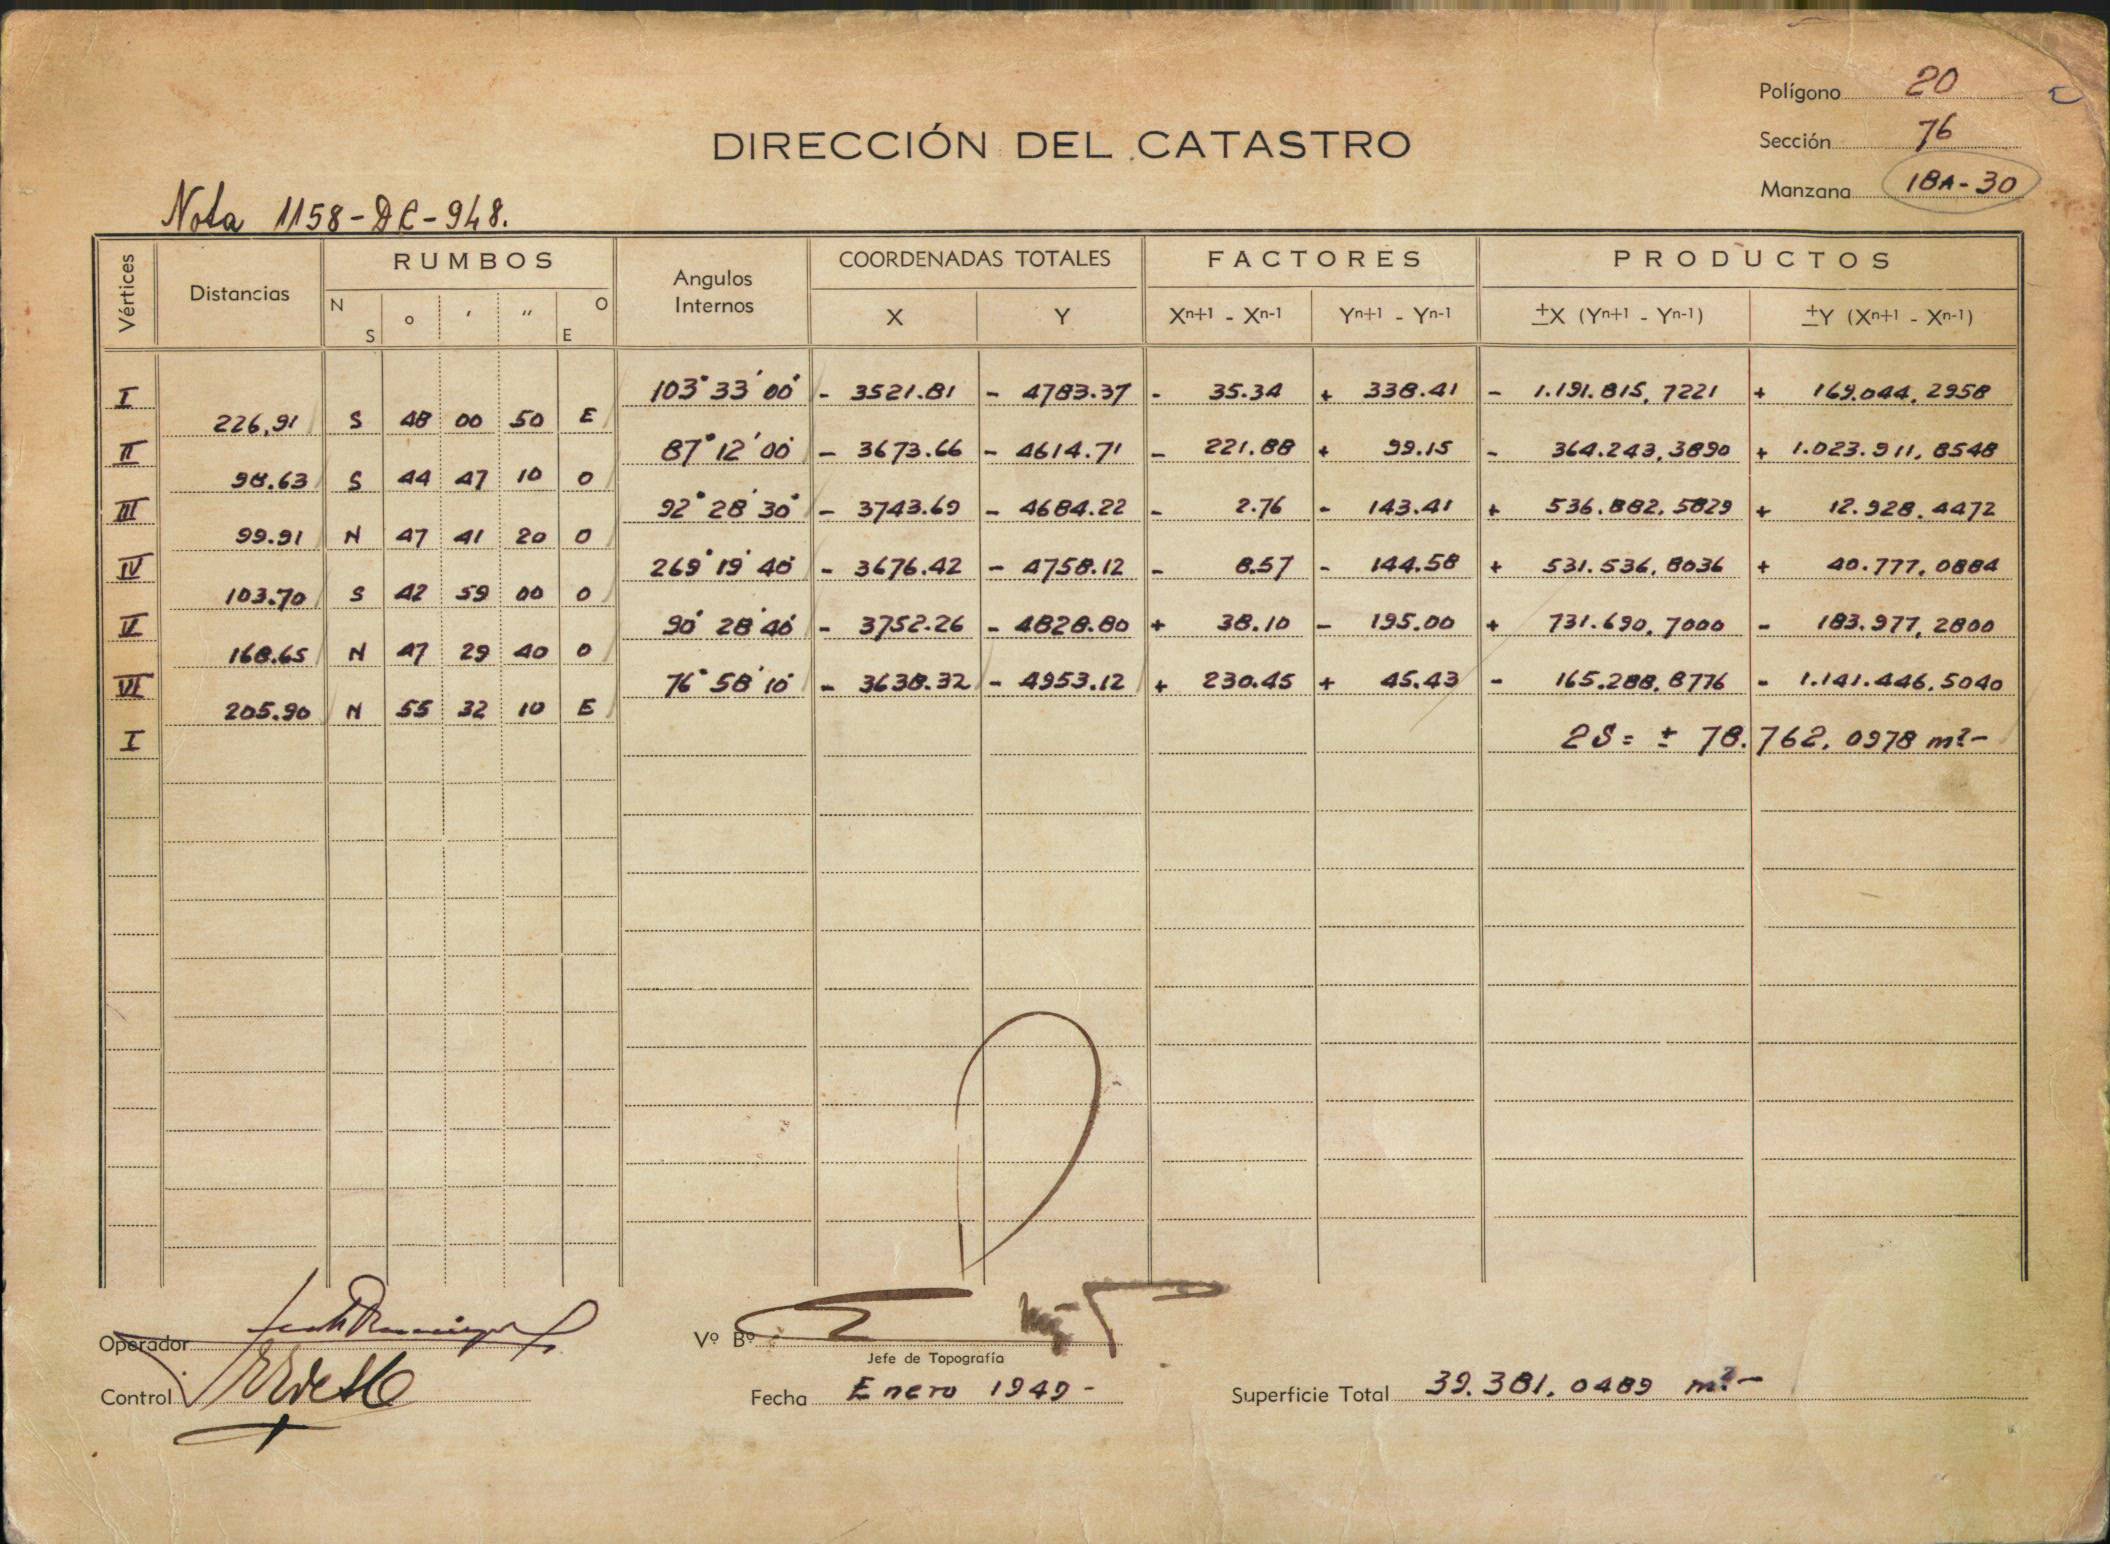 Polígono 20
DIRECCIÓN DEL CATASTRO
Sección 76
Manzana 18A-30
Nota 1158-DC-948.
Vértices Distancias RUMBOS Angulos Internos COORDENADAS TOTALES FACTORES PRODUCTOS
N S o ′ ″ O E X Y Xn+1 - Xn-1 Yn+1 - Yn-1 ±X (Yn+1 - Yn-1) ±Y (Xn+1 - Xn-1)
I 103° 33′ 00″ - 3521.81 - 4783.37 - 35.34 + 338.41 - 1.191.815,7221 + 169.044,2958
226.91 S 48 00 50 E
II 87° 12′ 00″ - 3673.66 - 4614.71 - 221.88 + 99.15 - 364.243,3890 + 1.023.911,8548
98.63 S 44 47 10 O
III 92° 28′ 30″ - 3743.69 - 4684.22 - 2.76 - 143.41 + 536.882,5829 + 12.928,4472
99.91 N 47 41 20 O
IV 269° 19′ 40″ - 3676.42 - 4758.12 - 8.57 - 144.58 + 531.536,8036 + 40.777,0884
103.70 S 42 59 00 O
V 90° 28′ 40″ - 3752.26 - 4828.80 + 38.10 - 195.00 + 731.690,7000 - 183.977,2800
168.65 N 47 29 40 O
VI 76° 58′ 10″ - 3638.32 - 4953.12 + 230.45 + 45.43 - 165.288,8776 - 1.141.446,5040
205.90 N 55 32 10 E
I 2S = ± 78.762,0978 m²-
Operador
Vº Bº
Jefe de Topografía
Control
Fecha Enero 1949-
Superficie Total 39.381,0489 m²-